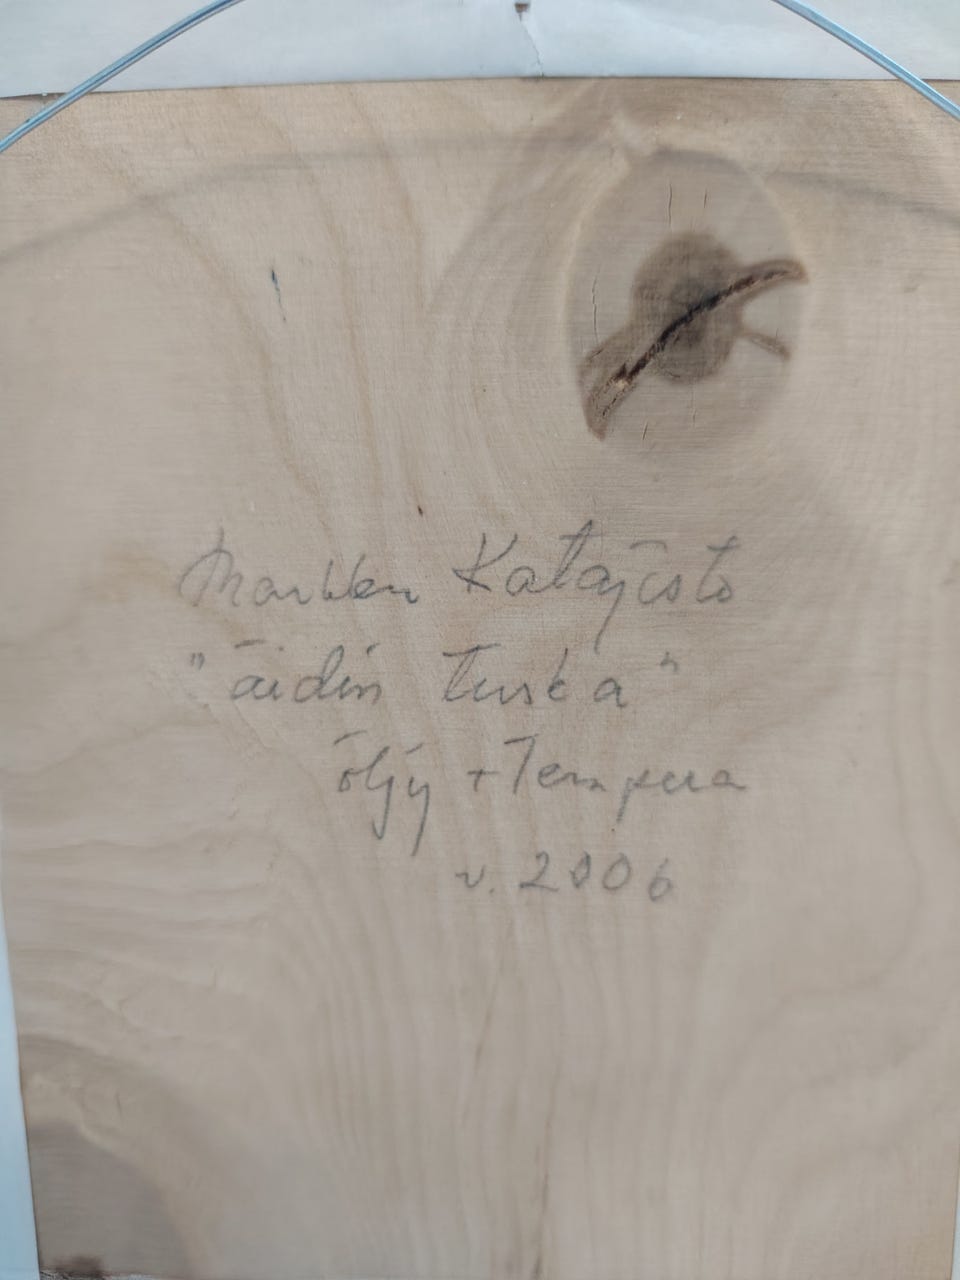 Markku Katajisto
"äidin tuska"
öljy + Tempera
v. 2006